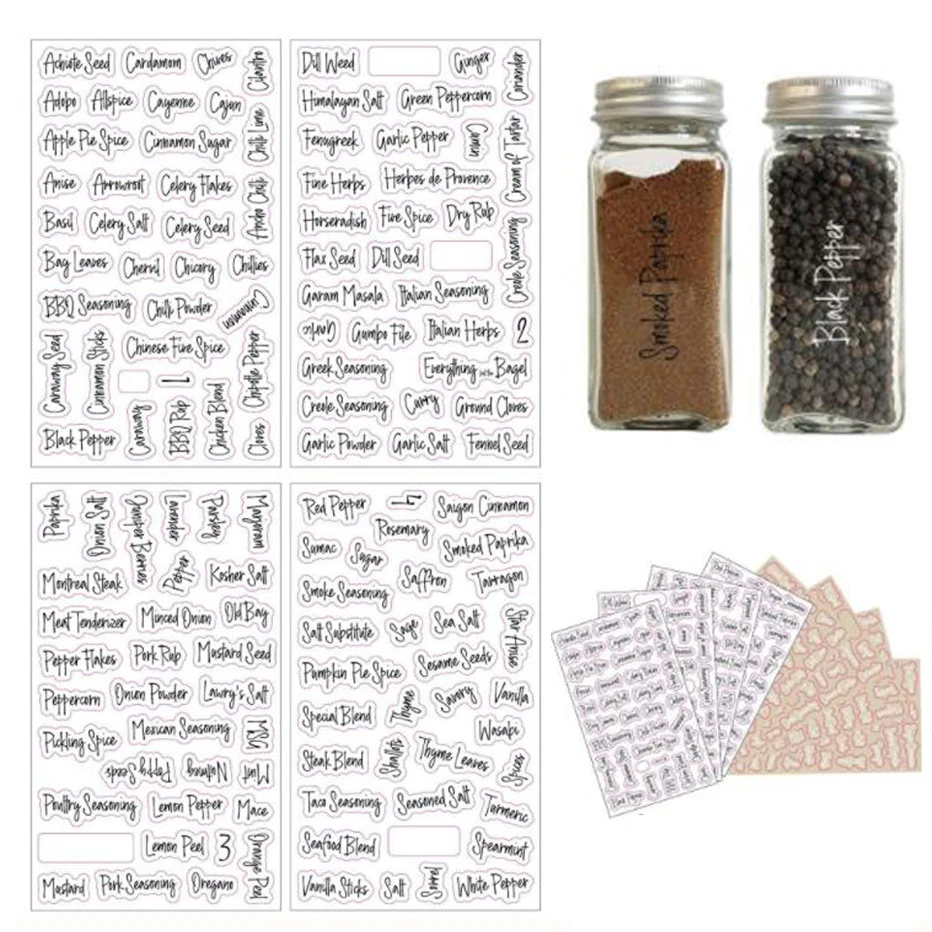 Achiote Seed Cardamom Chives Cilantro
Adobo Allspice Cayenne Cajun
Apple Pie Spice Cinnamon Sugar Chili Lime
Anise Arrowroot Celery Flakes Ancho Chili
Basil Celery Salt Celery Seed
Bay Leaves Chervil Chicory Chillies
BBQ Seasoning Chili Powder Cinnamon
Caraway Seed Cinnamon Sticks Chinese Five Spice Chipotle Pepper
1
Black Pepper Caraway BBQ Rub Chicken Blend Cloves
Dill Weed Ginger Coriander
Himalayan Salt Green Peppercorn
Fenugreek Garlic Pepper Cumin Cream of Tartar
Fine Herbs Herbes de Provence
Horseradish Five Spice Dry Rub
Flax Seed Dill Seed Creole Seasoning
Garam Masala Italian Seasoning
Garlic Gumbo File Italian Herbs 2
Greek Seasoning Everything but the Bagel
Creole Seasoning Curry Ground Cloves
Garlic Powder Garlic Salt Fennel Seed
Smoked Paprika
Black Pepper
Paprika Onion Salt Juniper Berries Lavender Parsley Marjoram
Montreal Steak Pepper Kosher Salt
Meat Tenderizer Minced Onion Old Bay
Pepper Flakes Pork Rub Mustard Seed
Peppercorn Onion Powder Lawry's Salt
Pickling Spice Mexican Seasoning MSG
Poppy Seeds Nutmeg Mint
Poultry Seasoning Lemon Pepper Mace
Lemon Peel 3 Orange Peel
Mustard Pork Seasoning Oregano
Red Pepper 4 Saigon Cinnamon
Rosemary
Sumac Sugar Smoked Paprika
Smoke Seasoning Saffron Tarragon
Salt Substitute Sage Sea Salt Star Anise
Pumpkin Pie Spice Sesame Seeds
Special Blend Thyme Savory Vanilla
Wasabi
Steak Blend Shallots Thyme Leaves Spices
Taco Seasoning Seasoned Salt Turmeric
Seafood Blend Spearmint
Vanilla Sticks Salt Sorrel White Pepper